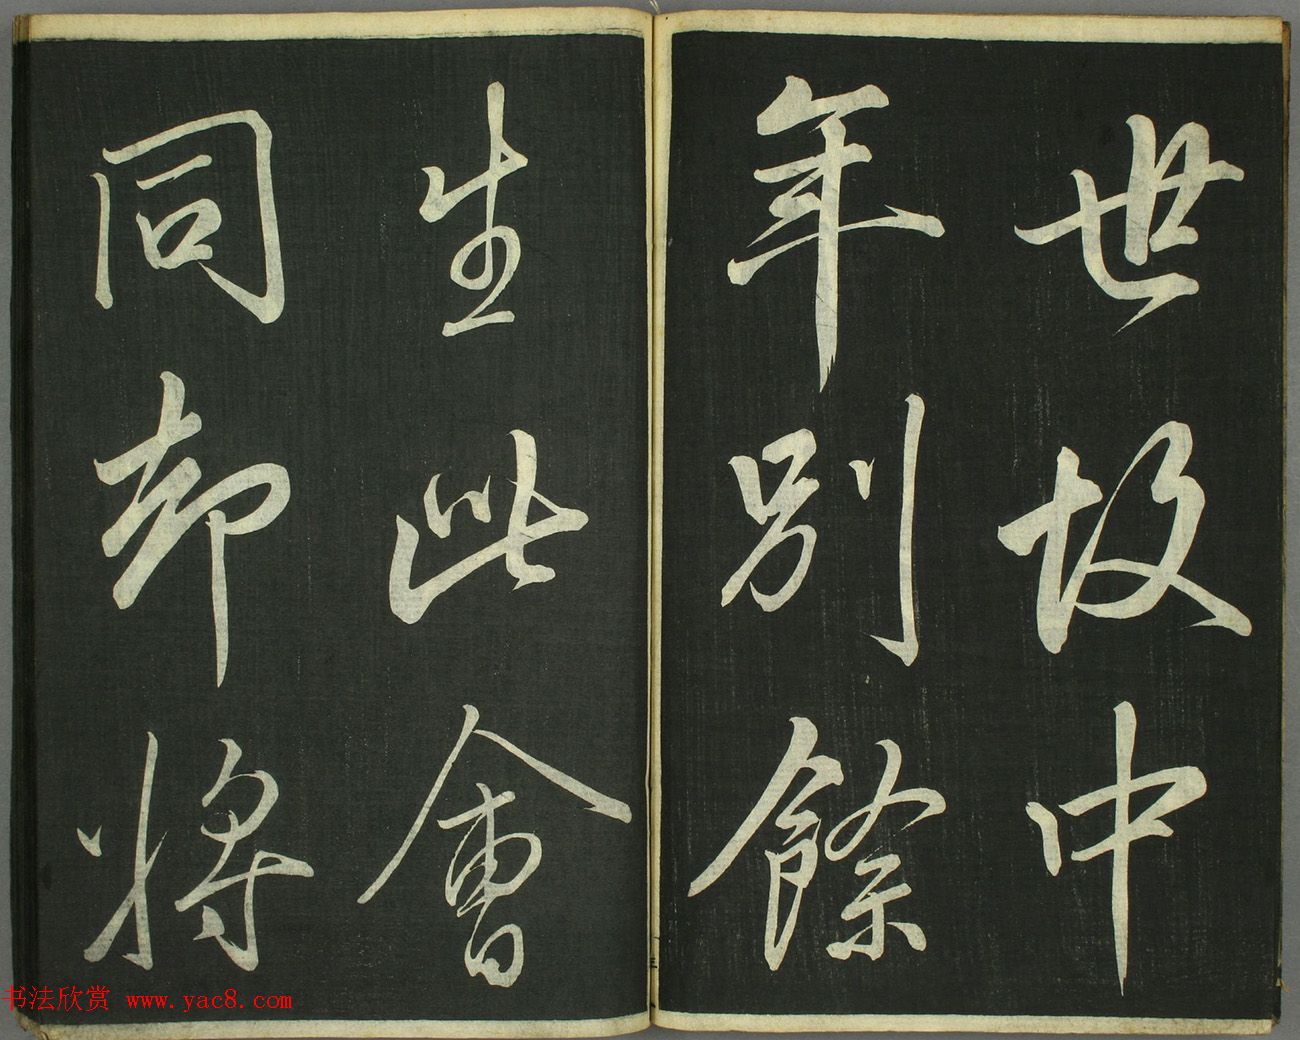 世故中
年别餘
生此會
同却將
书法欣赏 www.yac8.com